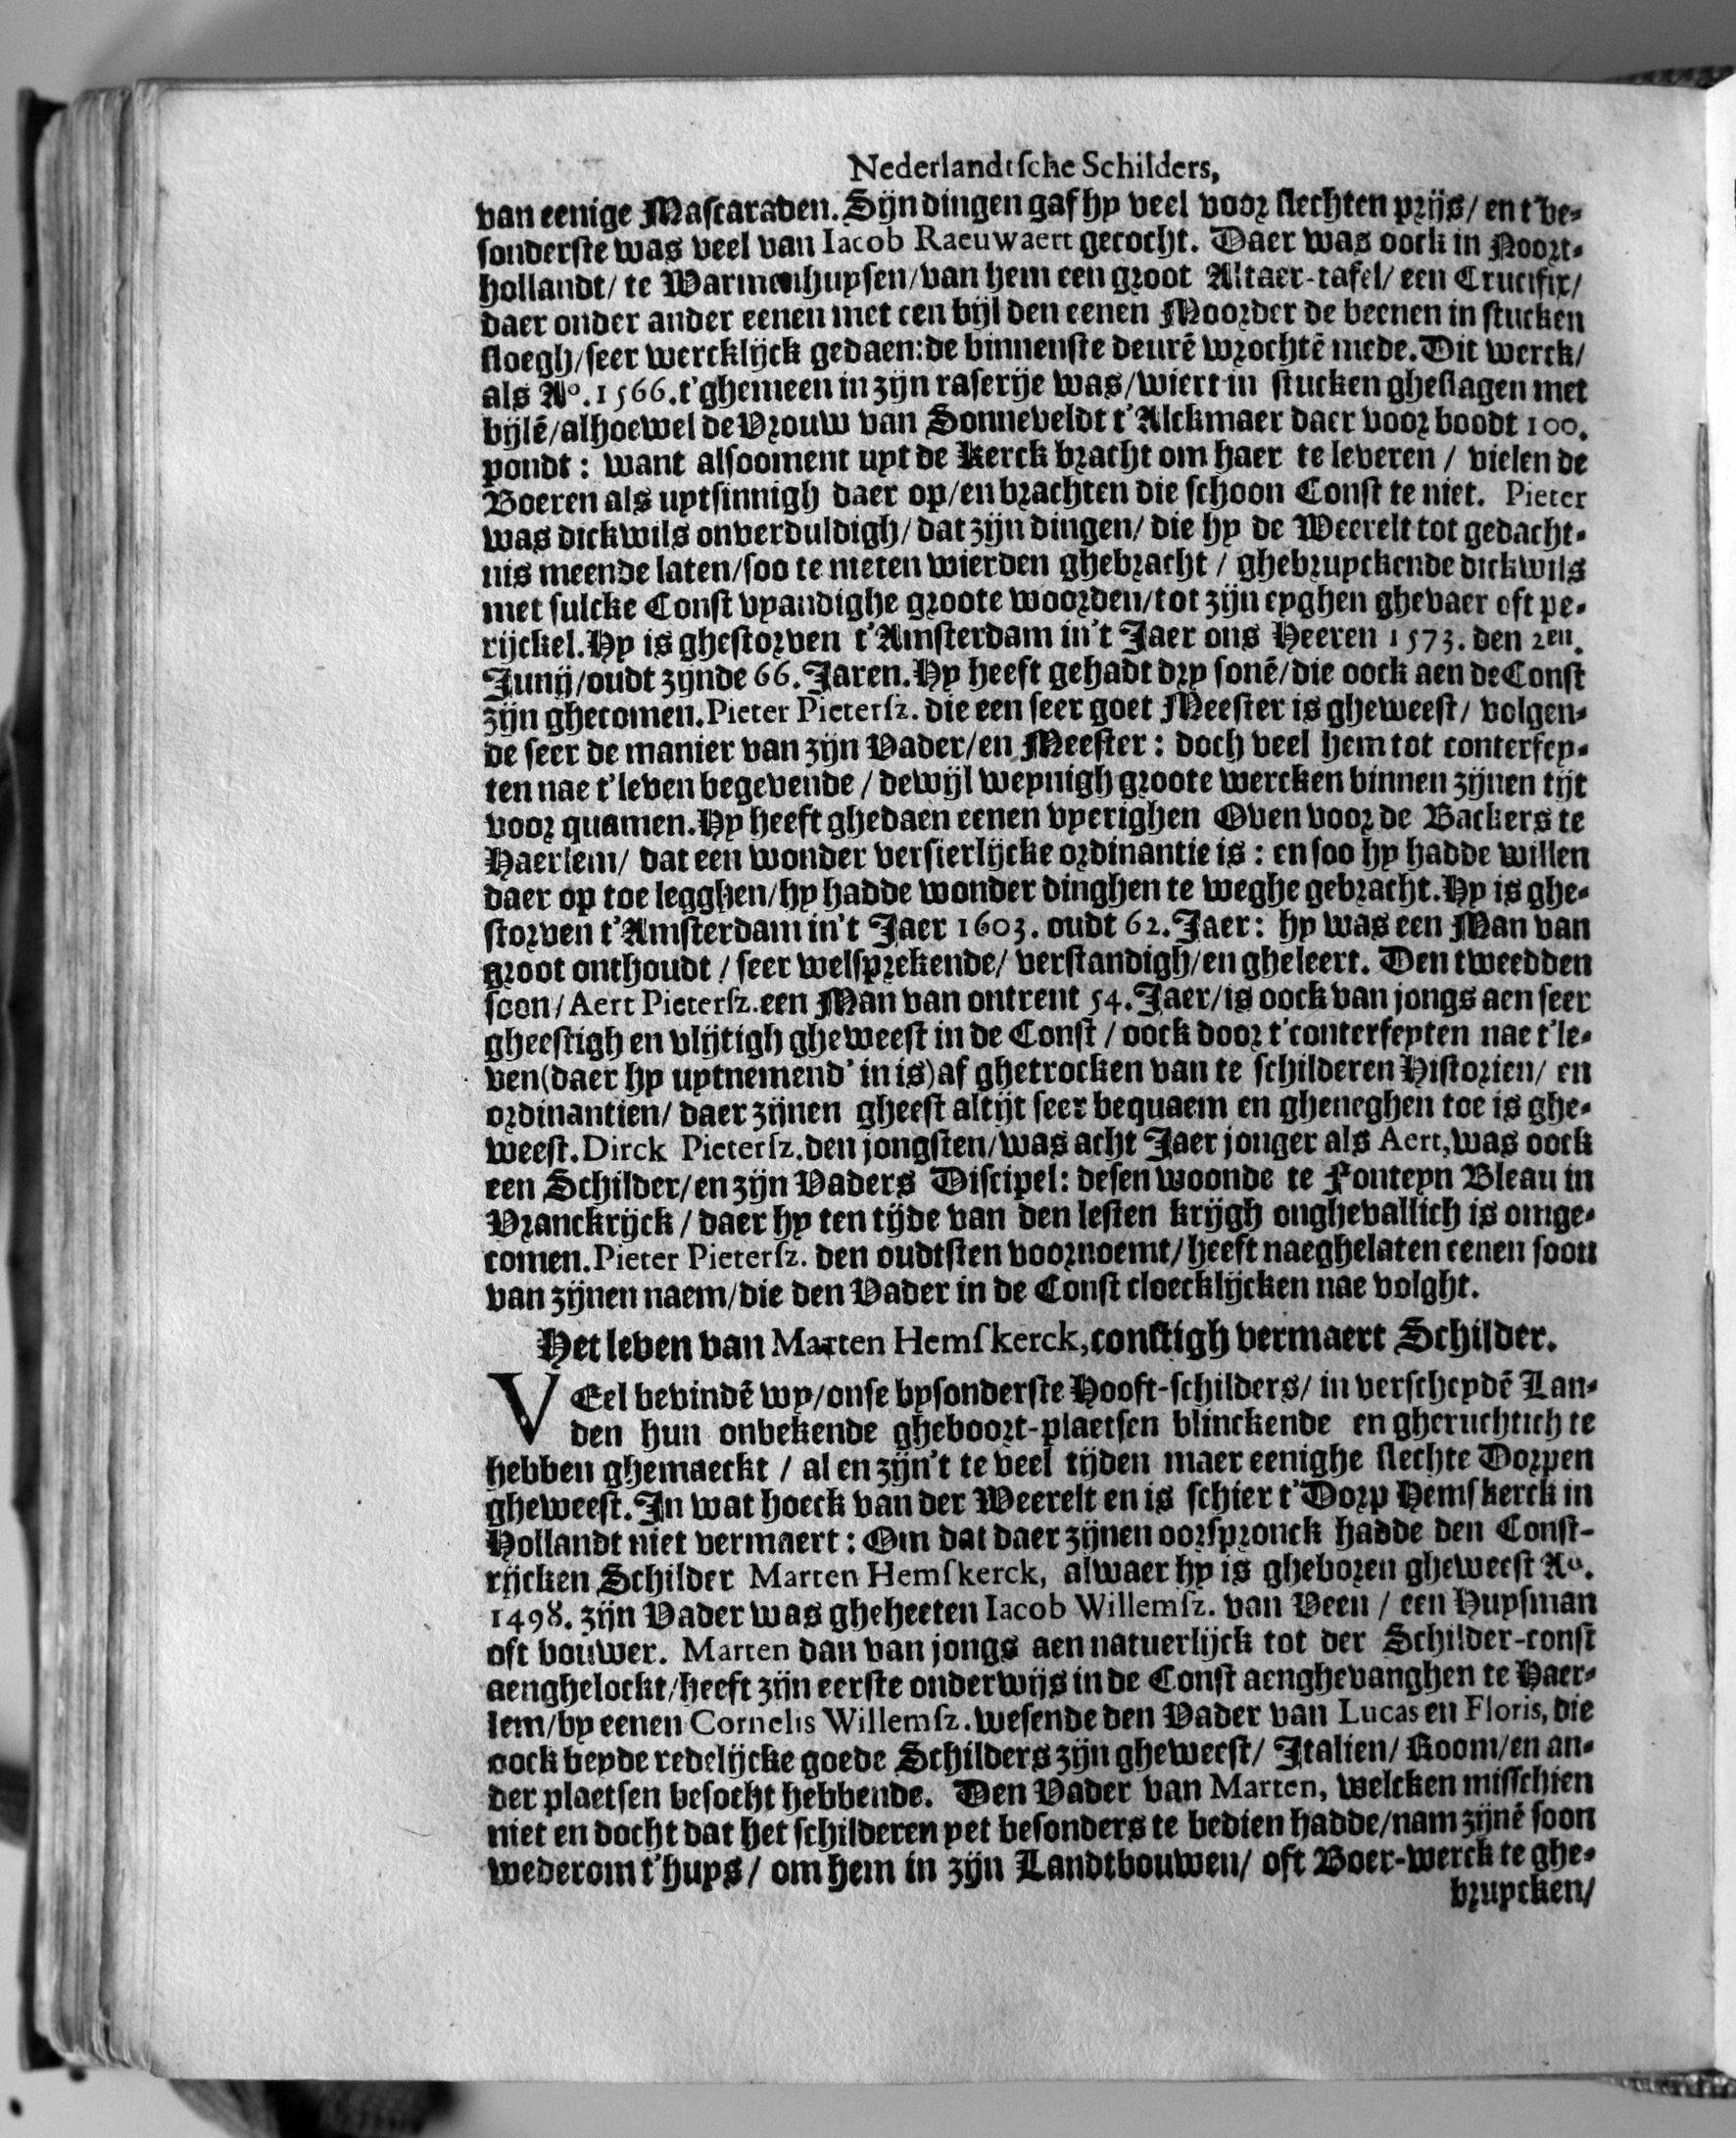 Nederlandtſche Schilders,
van eenige Maſcaraden. Sijn dingen gaf hy veel voor ſlechten prijs/ en t'be-
ſonderſte was veel van Iacob Raeuwaert gecocht. Daer was oock in Noort-
hollandt/ te Warmenhuyſen/van hem een groot Altaer-tafel/ een Crucifix/
daer onder ander eenen met een bijl den eenen Moorder de beenen in ſtucken
ſloegh/ſeer wercklijck gedaen:de binnenſte deurē wrochtē mede. Dit werck/
als Aº. 1566. t'ghemeen in zijn raſerije was/wiert in ſtucken gheſlagen met
bijlē/alhoewel de Vrouw van Sonneveldt t'Alckmaer daer voor boodt 100.
pondt: want alſooment uyt de Kerck bracht om haer te leveren / vielen de
Boeren als uytſinnigh daer op/en brachten die ſchoon Conſt te niet. Pieter
was dickwils onverduldigh/ dat zijn dingen/ die hy de Weerelt tot gedacht-
nis meende laten/ſoo te nieten wierden ghebracht / ghebruyckende dickwils
met ſulcke Conſt vyandighe groote woorden/tot zijn eyghen ghevaer oft pe-
rijckel. Hy is gheſtorven t'Amſterdam in't Jaer ons Heeren 1573. den 2en.
Junij/oudt zijnde 66. Jaren. Hy heeft gehadt dry ſonē/die oock aen de Conſt
zijn ghecomen. Pieter Pieterſz. die een ſeer goet Meeſter is gheweeſt/ volgen-
de ſeer de manier van zijn Vader/en Meeſter: doch veel hem tot conterfey-
ten nae t'leven begevende / dewijl weynigh groote wercken binnen zijnen tijt
voor quamen. Hy heeft ghedaen eenen vyerighen Oven voor de Backers te
Haerlem/ dat een wonder verſierlijcke ordinantie is: en ſoo hy hadde willen
daer op toe legghen/hy hadde wonder dinghen te weghe gebracht. Hy is ghe-
ſtorven t'Amſterdam in't Jaer 1603. oudt 62. Jaer: hy was een Man van
groot onthoudt / ſeer welſprekende/ verſtandigh/en gheleert. Den tweedden
ſoon/Aert Pieterſz. een Man van ontrent 54. Jaer/is oock van jongs aen ſeer
gheeſtigh en vlijtigh gheweeſt in de Conſt / oock door t'conterfeyten nae t'le-
ven(daer hy uytnemend' in is)af ghetrocken van te ſchilderen Hiſtorien/ en
ordinantien/ daer zijnen gheeſt altijt ſeer bequaem en gheneghen toe is ghe-
weeſt. Dirck Pieterſz. den jongſten/was acht Jaer jonger als Aert, was oock
een Schilder/en zijn Vaders Diſcipel: deſen woonde te Fonteyn Bleau in
Vranckrijck / daer hy ten tijde van den leſten krijgh onghevallich is omge-
comen. Pieter Pieterſz. den oudtſten voornoemt/heeft naeghelaten eenen ſoon
van zijnen naem/die den Vader in de Conſt cloecklijcken nae volght.
Het leven van Marten Hemſkerck, conſtigh vermaert Schilder.
VEel bevindē wy/onſe byſonderſte Hooft-ſchilders/ in verſcheydē Lan-
den hun onbekende gheboort-plaetſen blinckende en gheruchtich te
hebben ghemaeckt / al en zijn't te veel tijden maer eenighe ſlechte Dorpen
gheweeſt. In wat hoeck van der Weerelt en is ſchier t'Dorp Hemſkerck in
Hollandt niet vermaert: Om dat daer zijnen oorſpronck hadde den Conſt-
rijcken Schilder Marten Hemſkerck, alwaer hy is gheboren gheweeſt Aº.
1498. zijn Vader was gheheeten Iacob Willemſz. van Veen / een Huyſman
oft bouwer. Marten dan van jongs aen natuerlijck tot der Schilder-conſt
aenghelockt/heeft zijn eerſte onderwijs in de Conſt aenghevanghen te Haer-
lem/by eenen Cornelis Willemſz. weſende den Vader van Lucas en Floris, die
oock beyde redelijcke goede Schilders zijn gheweeſt/ Italien/ Room/en an-
der plaetſen beſocht hebbende. Den Vader van Marten, welcken miſſchien
niet en docht dat het ſchilderen yet beſonders te bedien hadde/nam zijnē ſoon
wederom t'huys/ om hem in zijn Landtbouwen/ oft Boer-werck te ghe-
bruycken/